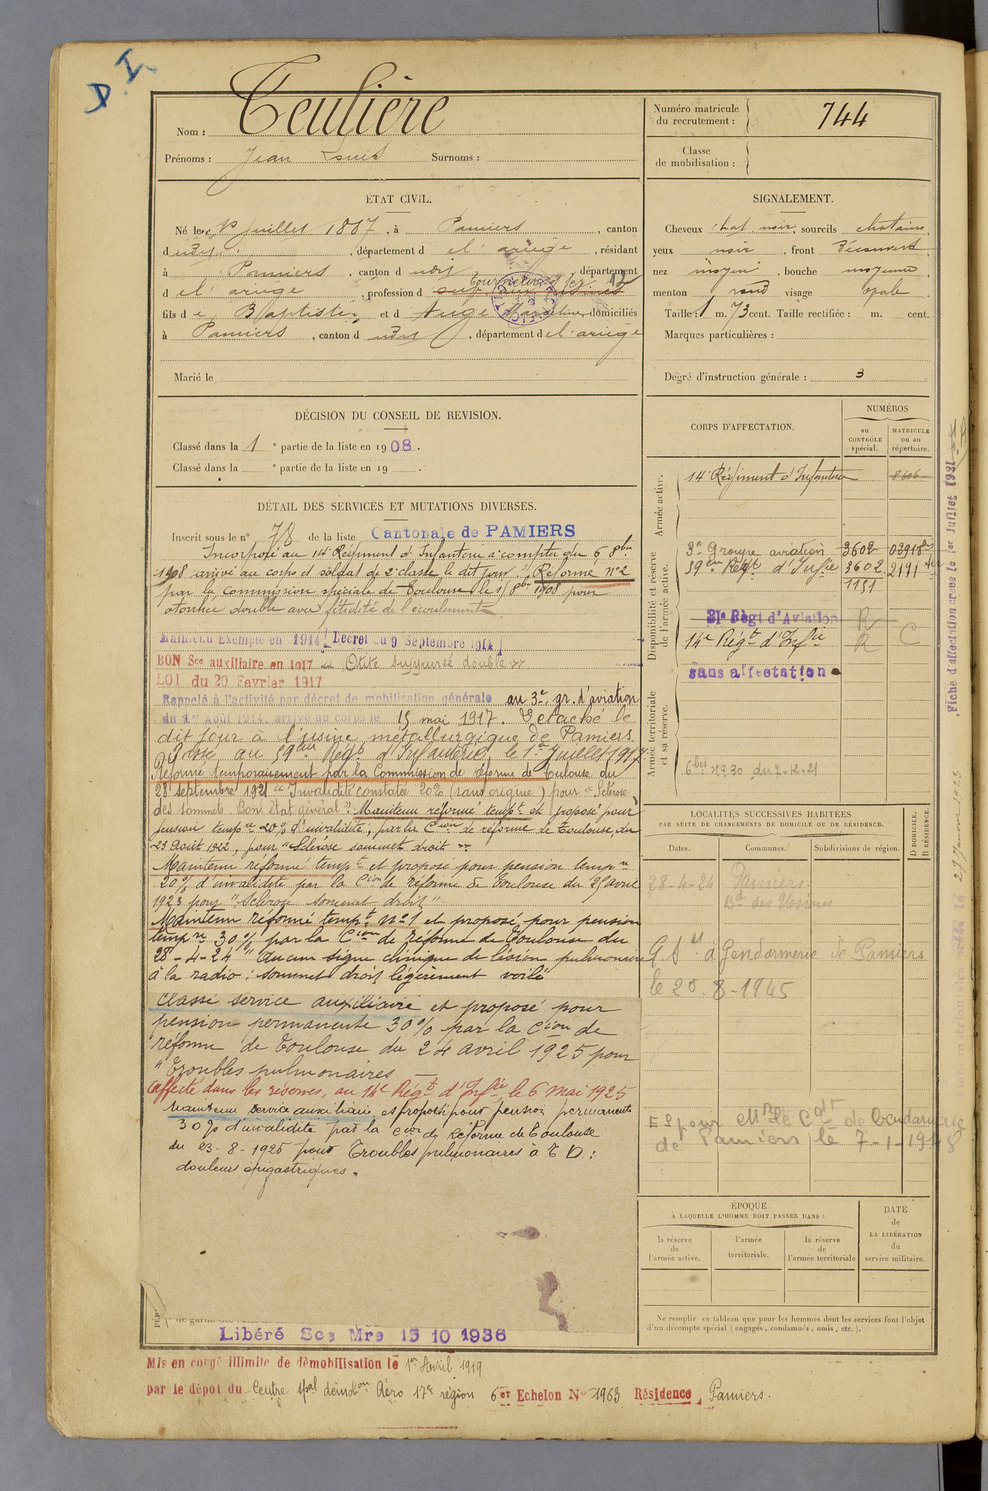 D I
Nom : Teulière
Prénoms : Jean Louis Surnoms :
Numéro matricule du recrutement : 744
Classe de mobilisation :
ÉTAT CIVIL.
Né le Juillet 1887, à Pamiers, canton
dudit, département de l'ariège, résidant
à Pamiers, canton dudit, département
de l'ariège, profession d
fils de Baptiste et d Augé domiciliés
à Pamiers, canton dudit, département de l'ariège
Marié le
SIGNALEMENT.
Cheveux chat. noir, sourcils chatains
yeux noir, front Découvert
nez moyen, bouche moyenne
menton rond visage ovale
Taille : 1 m. 73 cent. Taille rectifiée : m. cent.
Marques particulières :
Degré d'instruction générale : 3
DÉCISION DU CONSEIL DE REVISION.
Classé dans la 1e partie de la liste en 1908.
Classé dans la e partie de la liste en 19 .
DÉTAIL DES SERVICES ET MUTATIONS DIVERSES.
Inscrit sous le n° 78 de la liste Cantonale de PAMIERS
Incorporé au 14e Régiment d'Infanterie à compter du 6 8bre
1908 arrivé au corps et soldat de 2e classe le dit jour. Réformé n°2
par la Commission spéciale de Toulouse le 8bre 1908 pour
otorrhée double avec fétidité de l'écoulement
Maintenu Exempté en 1914 Décret du 9 Septembre 1914
BON Sce auxiliaire en 1917 "Otite suppurée double"
LOI du 20 Fevrier 1917
Rappelé à l'activité par décret de mobilisation générale au 3e gr. d'aviation
du 1er Août 1914, arrivé au corps le 15 mai 1917. Détaché le
dit jour à l'usine métallurgique de Pamiers
Passé au 59ème Régt d'Infanterie, le 1er Juillet 1917
Réformé temporairement par la Commission de réforme de Toulouse du
28 septembre 1921 "Invalidité constatée 20% (sans origine) pour "Sclérose
des sommets Bon état général". Maintenu réformé tempt et proposé pour
pension tempre 20% d'invalidité, par la Cion de réforme de Toulouse du
23 Août 1922, pour "Sclérose sommet droit".
Maintenu réformé tempt et proposé pour pension tempre
20% d'invalidité par la Cion de réforme de Toulouse du avril
1923 pour "Sclérose sommet droit"
Maintenu réformé tempt n°1 et proposé pour pension
tempre 30% par la Cion de réforme de Toulouse du
28-4-24 "Aucun signe clinique de lésion pulmonaire
à la radio : sommet droit légèrement voilé
Classé service auxiliaire et proposé pour
pension permanente 30% par la Cion de
réforme de Toulouse du 24 avril 1925 pour
"Troubles pulmonaires
affecté dans les réserves, au 14e Régt d'Infie le 6 mai 1925
Maintenu service auxiliaire et proposé pour pension permanente
30% d'invalidité par la Cion de réforme de Toulouse
du 23-8-1925 pour Troubles pulmonaires à T D :
douleurs épigastriques.
Libéré Sce Mre 15 10 1936
Mis en congé illimité de démobilisation le 1er Avril 1919
par le dépot du Centre spal démobon Aéro 17e région 6er Echelon N° 1963 Résidence Pamiers.
CORPS D'AFFECTATION.
NUMÉROS
au CONTRÔLE spécial.
MATRICULE ou au répertoire.
Armée active.
14e Régiment d'Infanterie
Disponibilité et réserve de l'armée active.
3e Groupe aviation 3602
59ème Régt d'Infie 3602
1151
31e Régt d'Aviation R
14e Régt d'Infie R C
sans affectation
Armée territoriale et sa réserve.
LOCALITÉS SUCCESSIVES HABITÉES
PAR SUITE DE CHANGEMENTS DE DOMICILE OU DE RÉSIDENCE.
Dates. Communes. Subdivisions de région. D DOMICILE. R RÉSIDENCE
28-4-24 Pamiers
Bd des Usines
à Gendarmerie de Pamiers
le 20-8-1945
de Gendarmerie
de Pamiers le 7-1-1948
ÉPOQUE
À LAQUELLE L'HOMME DOIT PASSER DANS :
la réserve de l'armée active.
l'armée territoriale.
la réserve de l'armée territoriale
DATE de LA LIBÉRATION du service militaire.
Ne remplir ce tableau que pour les hommes dont les services font l'objet
d'un décompte spécial (engagés, condamnés, omis, etc.).
Fiche d'affectation créée le 1er Juillet 1921